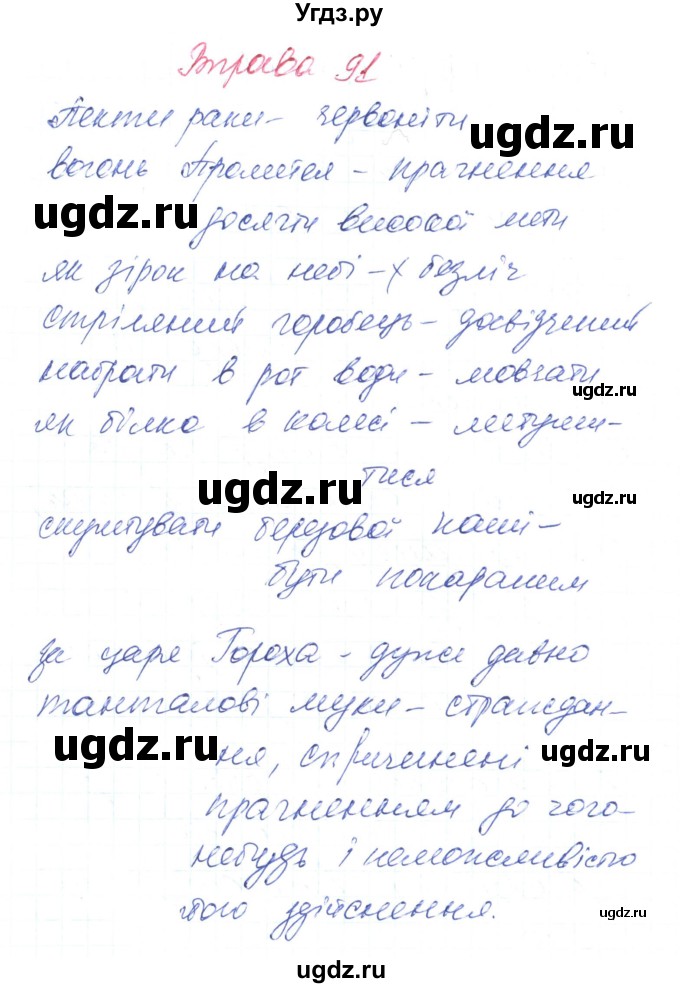 Угдз.ру
Вправа 91
Пекти раки – червоніти
ugdz.ru
вогонь Прометея – прагнення
ugdz.ru
досягти високої мети
як зірок на небі – безліч
стріляний горобець – досвідчений
набрати в рот води – мовчати
ugdz.ru
як білка в колесі – метуши-
тися
ugdz.ru
ugdz.ru
скуштувати березової каші –
бути покараним
за царя Гороха – дуже давно
танталові муки – страждан-
ugdz.ru
ня, спричинені
ugdz.ru
прагненням до чого-
небудь і неможливістю
його здійснення.
ugdz.ru
ugdz.ru